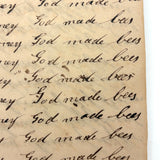 ney God made bees
ney God made bees
ney God made bees
ney God made bees
ney God made bees
ney God made bees
ney God made bees
God made bees